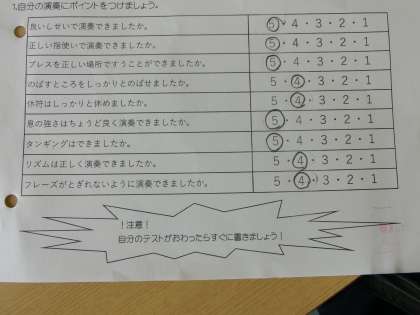 1.自分の演奏にポイントをつけましょう。
良いしせいで演奏できましたか。 5・4・3・2・1
正しい指使いで演奏できましたか。 5・4・3・2・1
ブレスを正しい場所ですうことができましたか。 5・4・3・2・1
のばすところをしっかりとのばせましたか。 5・4・3・2・1
休符はしっかりと休めましたか。 5・4・3・2・1
息の強さはちょうど良く演奏できましたか。 5・4・3・2・1
タンギングはできましたか。 5・4・3・2・1
リズムは正しく演奏できましたか。 5・4・3・2・1
フレーズがとぎれないように演奏できましたか。 5・4・3・2・1
！注意！
自分のテストがおわったらすぐに書きましょう！